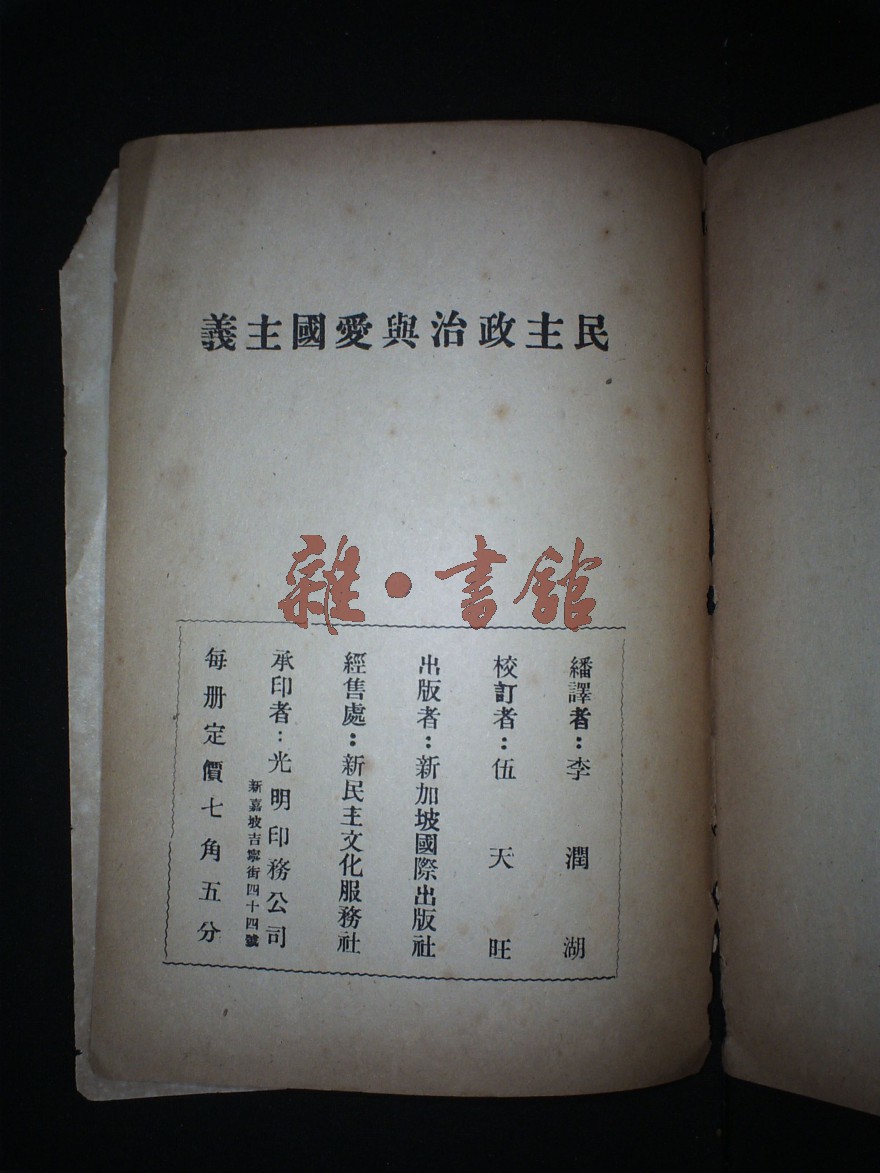 民主政治與愛國主義
雜·書館
繙譯者：李潤湖
校訂者：伍天旺
出版者：新加坡國際出版社
經售處：新民主文化服務社
承印者：光明印務公司
新嘉坡吉寧街四十四號
每册定價七角五分